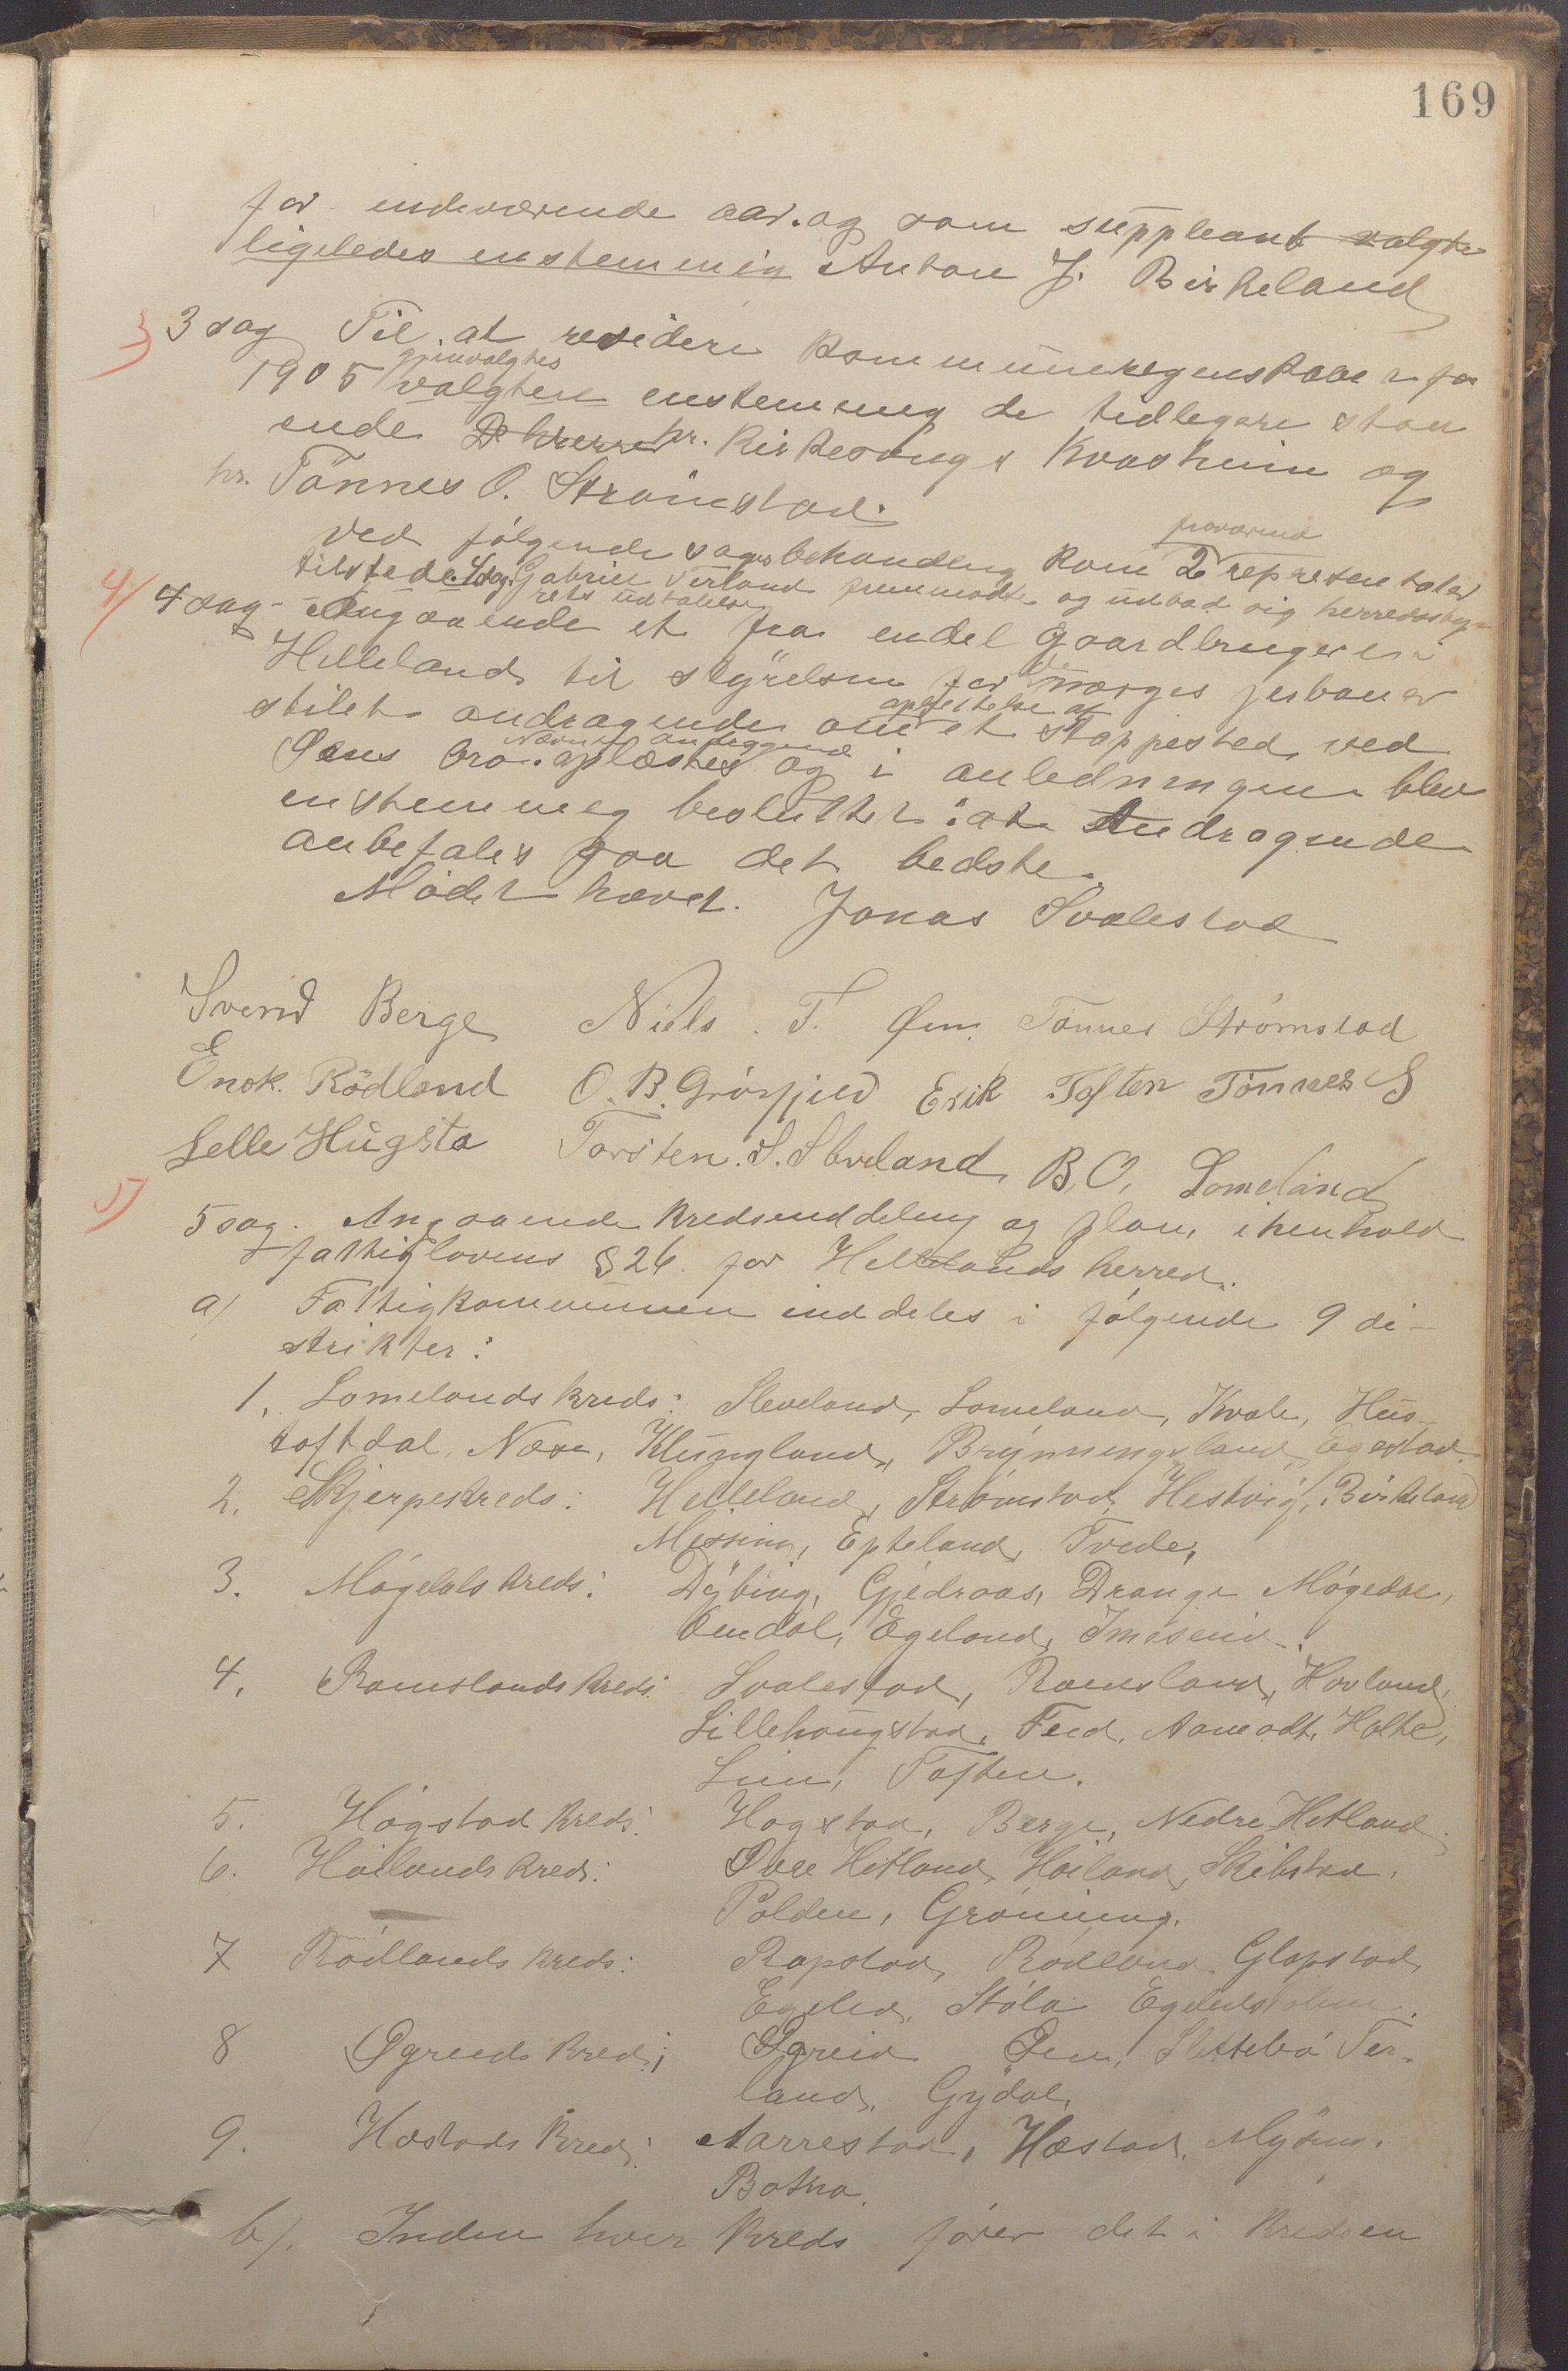 169
for indeværende aar. og som suppleant valgtes
ligeledes enstemmig Anton J. Birkeland
3) 3 sag Til at revidere kommuneregnskaber for
gjenvalgtes
1905 valgtes enstemmig de tidligere staa
ende D herrer hr. Kirkesanger Kvasheim og
hr. Tönnes O. Strömstad.
fraværende
Ved følgende sagsbehandling kom 2 repræsentater
tilstede. Gabriel Terland fremmødte og udbad sig herredssty-
rets udtalelse
4) 4 sag. Angaaende et fra endel gaardbrugere i
Helleland til styrelsen for de norges jerbaner
oprettelse af
stilet andragende om et stoppested ved
Nævnte andragende
Øens bro. oplæstes og i anledningen blev
enstemmig besluttet: at Andragende
anbefales paa det bedste.
Mødet hævet. Jonas Svalestad
Svend Berge Niels. T. Øen Tønnes Strømstad
Enok. Rödland O. B. Grøsfjeld Erik Toften Tönnes S
Lelle Hügsta Torsten. S. Sleveland B. O. Lomeland
5) 5 sag. Angaaende kredsinddeling og plan i henhold
fattiglovens § 26. for Hellelands herred.
a) Fattigkommunen inddeles i følgende 9 di-
strikter:
1. Lomelands kreds: Sleveland, Lomeland, Kvale, Hüs-
toftdal, Nose, Klüngland, Brynningsland, Egestad.
2. Skjerpe kreds: Helleland, Strömstad, Hestvig, Birkeland
Messing, Epteland, Tvede,
3. Mögedals kreds: Dybing, Gjedraas, Drange Mögedal,
Omdal, Egeland, Imeseid.
4. Ramslands kreds: Svalestad, Ramsland, Hovland,
Lillehougstad, Feed, Aamodt, Holte,
Lien, Toften.
5. Högstad kreds: Hogstad, Berge, Nedre Hetland.
6. Höilands kreds: Øvre Hetland, Höiland, Skibstad.
Polden, Grønning.
7 Rödlands kreds: Rapstad, Rödland Glapstad,
Egeled, Støla Egeledstolen.
8 Øgreids kreds; Øgreid Øen, Slettebö Ter-
land, Gydal,
9. Hæstads kreds: Aarrestad, Hæstad, Mysing.
Botna.
b). Inden hver kreds fører det i kredsen